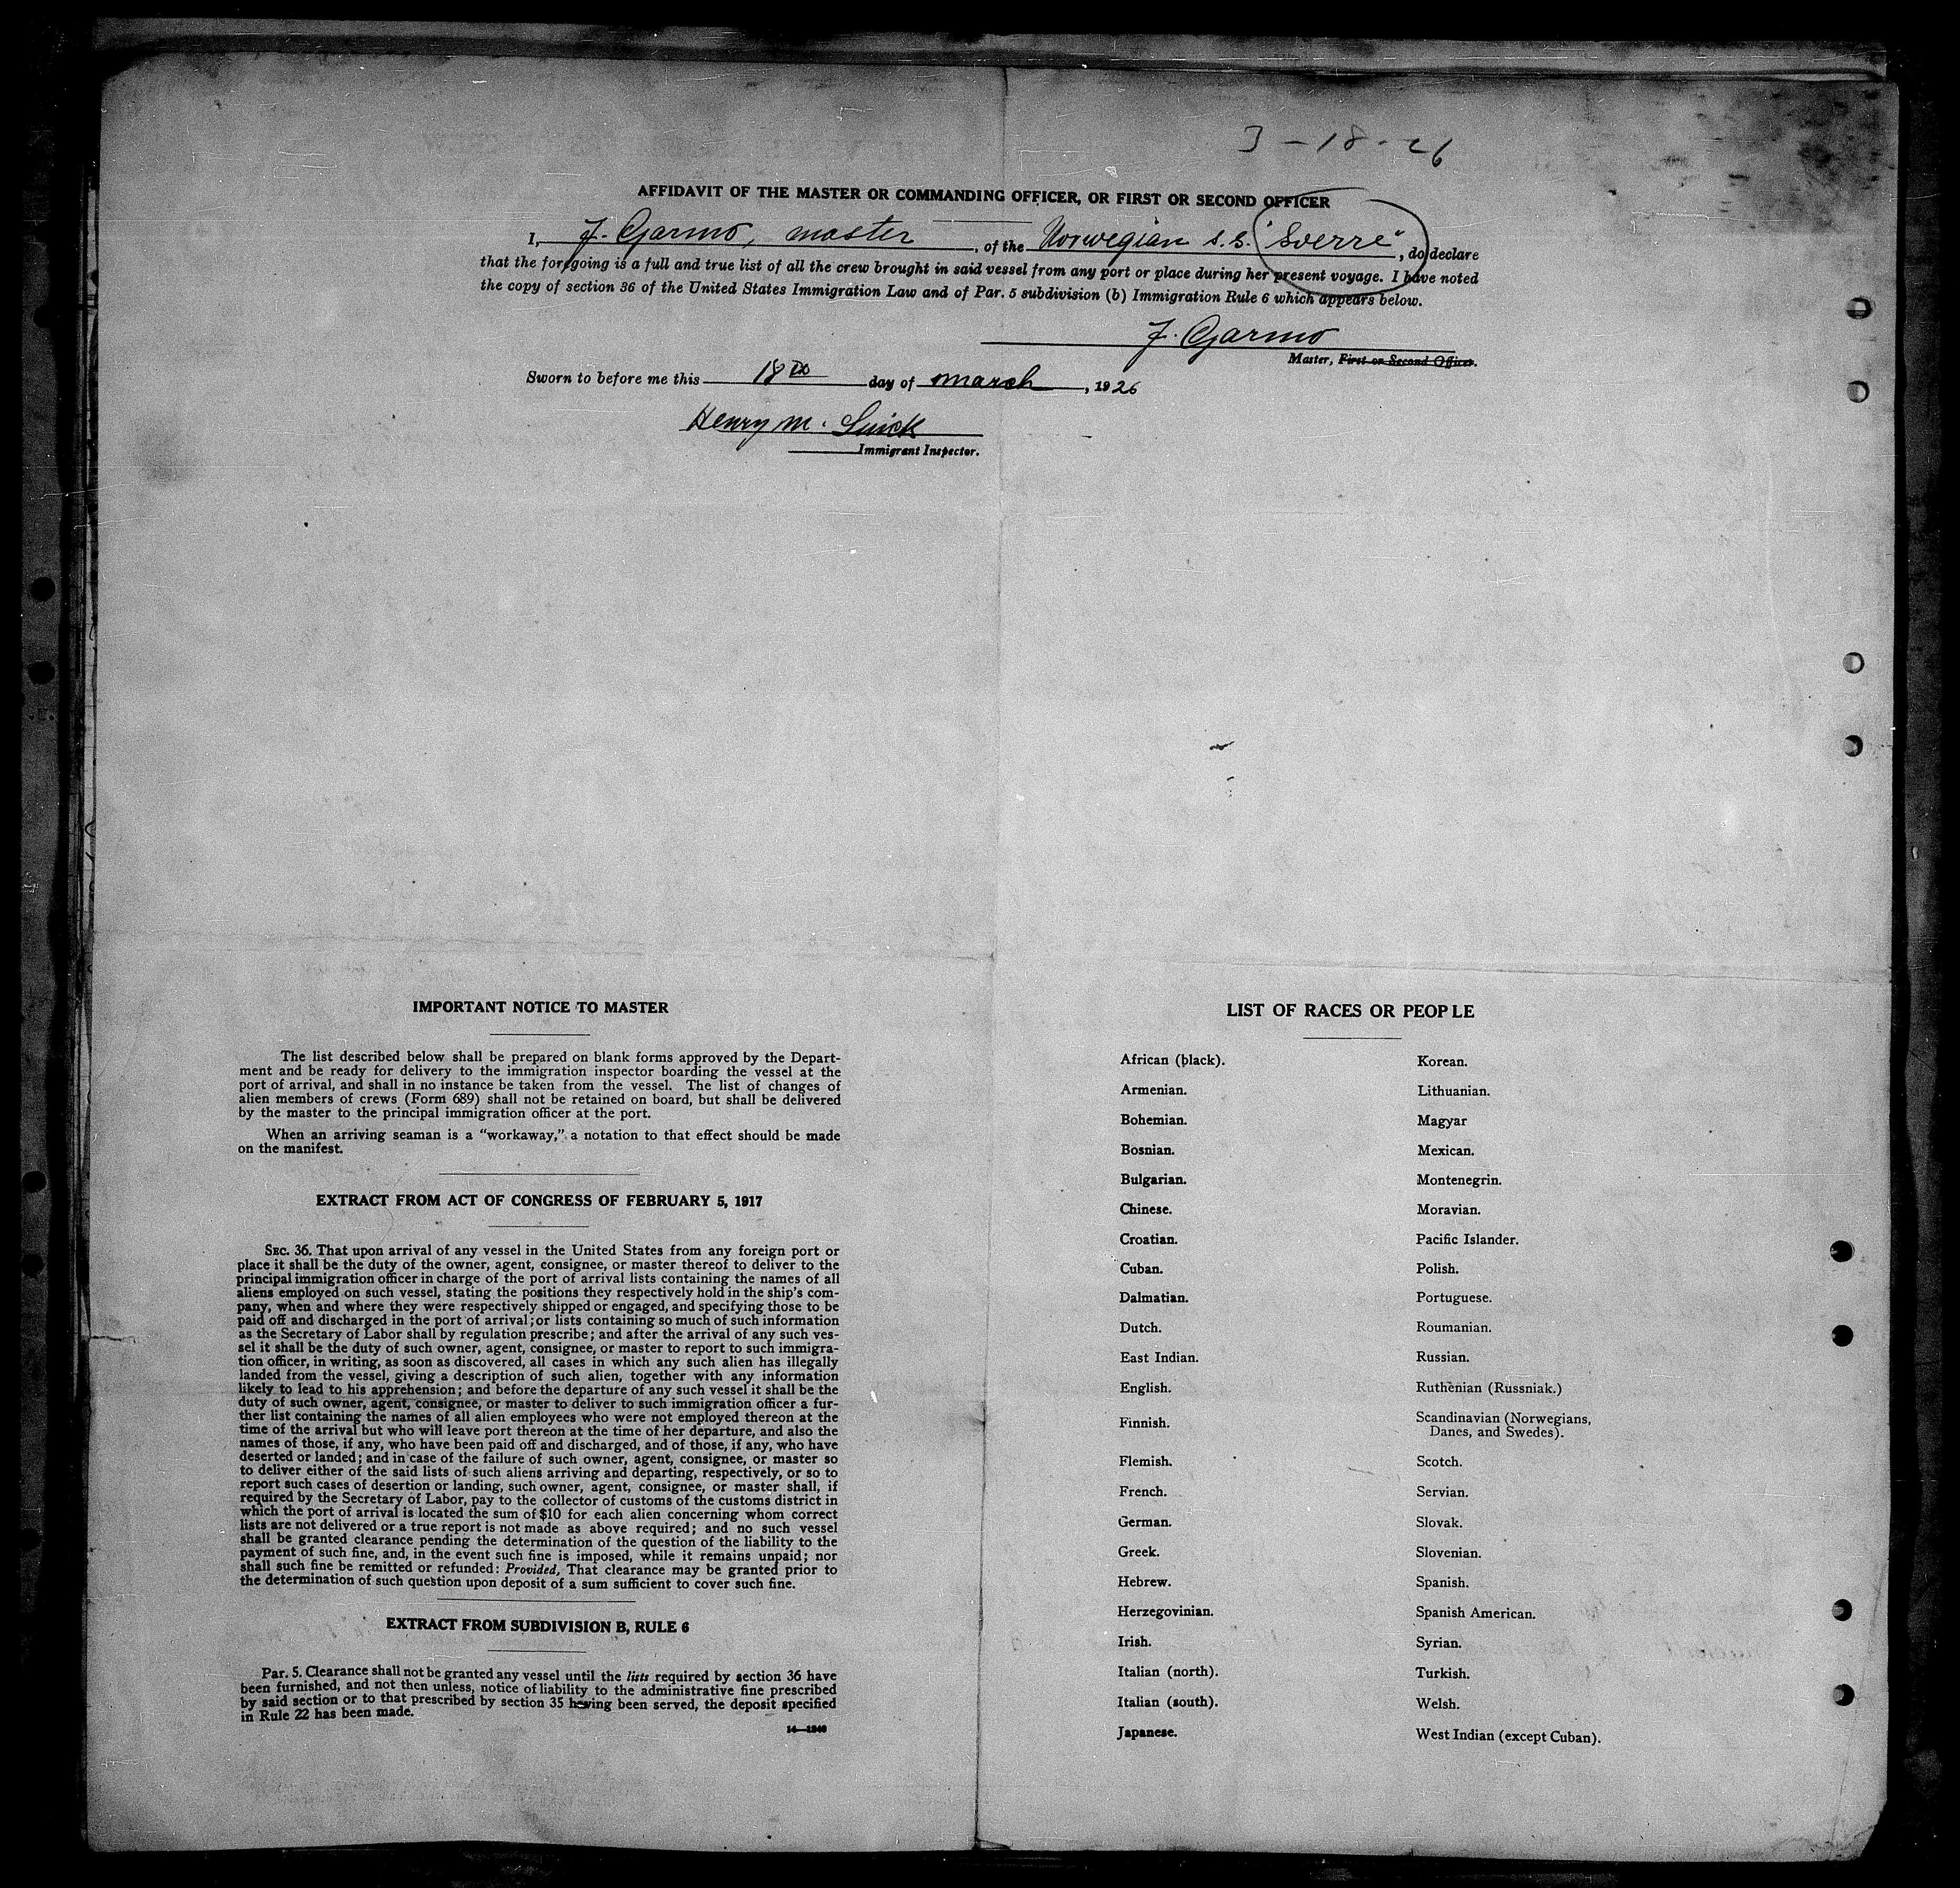 3-18-26
AFFIDAVIT OF THE MASTER OR COMMANDING OFFICER, OR FIRST OR SECOND OFFICER
I, J. Garmo, master, of the Norwegian s.s. "Sverre", do declare
that the foregoing is a full and true list of all the crew brought in said vessel from any port or place during her present voyage. I have noted
the copy of section 36 of the United States Immigration Law and of Par. 5 subdivision (b) Immigration Rule 6 which appears below.
J. Garmo
Master, First or Second Officer.
Sworn to before me this 18th day of march, 1926
Henry M.
Immigrant Inspector.
IMPORTANT NOTICE TO MASTER
The list described below shall be prepared on blank forms approved by the Depart-
ment and be ready for delivery to the immigration inspector boarding the vessel at the
port of arrival, and shall in no instance be taken from the vessel. The list of changes of
alien members of crews (Form 689) shall not be retained on board, but shall be delivered
by the master to the principal immigration officer at the port.
When an arriving seaman is a "workaway," a notation to that effect should be made
on the manifest.
EXTRACT FROM ACT OF CONGRESS OF FEBRUARY 5, 1917
SEC. 36. That upon arrival of any vessel in the United States from any foreign port or
place it shall be the duty of the owner, agent, consignee, or master thereof to deliver to the
principal immigration officer in charge of the port of arrival lists containing the names of all
aliens employed on such vessel, stating the positions they respectively hold in the ship's com-
pany, when and where they were respectively shipped or engaged, and specifying those to be
paid off and discharged in the port of arrival; or lists containing so much of such information
as the Secretary of Labor shall by regulation prescribe; and after the arrival of any such ves-
sel it shall be the duty of such owner, agent, consignee, or master to report to such immigra-
tion officer, in writing, as soon as discovered, all cases in which any such alien has illegally
landed from the vessel, giving a description of such alien, together with any information
likely to lead to his apprehension; and before the departure of any such vessel it shall be the
duty of such owner, agent, consignee, or master to deliver to such immigration officer a fur-
ther list containing the names of all alien employees who were not employed thereon at the
time of the arrival but who will leave port thereon at the time of her departure, and also the
names of those, if any, who have been paid off and discharged, and of those, if any, who have
deserted or landed; and in case of the failure of such owner, agent, consignee, or master so
to deliver either of the said lists of such aliens arriving and departing, respectively, or so to
report such cases of desertion or landing, such owner, agent, consignee, or master shall, if
required by the Secretary of Labor, pay to the collector of customs of the customs district in
which the port of arrival is located the sum of $10 for each alien concerning whom correct
lists are not delivered or a true report is not made as above required; and no such vessel
shall be granted clearance pending the determination of the question of the liability to the
payment of such fine, and, in the event such fine is imposed, while it remains unpaid; nor
shall such fine be remitted or refunded: Provided, That clearance may be granted prior to
the determination of such question upon deposit of a sum sufficient to cover such fine.
EXTRACT FROM SUBDIVISION B, RULE 6
Par. 5. Clearance shall not be granted any vessel until the lists required by section 36 have
been furnished, and not then unless, notice of liability to the administrative fine prescribed
by said section or to that prescribed by section 35 having been served, the deposit specified
in Rule 22 has been made.
14—1240
LIST OF RACES OR PEOPLE
African (black).
Armenian.
Bohemian.
Bosnian.
Bulgarian.
Chinese.
Croatian.
Cuban.
Dalmatian.
Dutch.
East Indian.
English.
Finnish.
Flemish.
French.
German.
Greek.
Hebrew.
Herzegovinian.
Irish.
Italian (north).
Italian (south).
Japanese.
Korean.
Lithuanian.
Magyar
Mexican.
Montenegrin.
Moravian.
Pacific Islander.
Polish.
Portuguese.
Roumanian.
Russian.
Ruthenian (Russniak.)
Scandinavian (Norwegians,
Danes, and Swedes).
Scotch.
Servian.
Slovak.
Slovenian.
Spanish.
Spanish American.
Syrian.
Turkish.
Welsh.
West Indian (except Cuban).